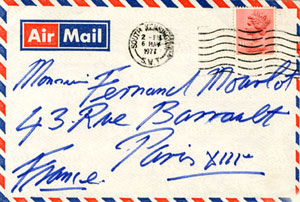 Air Mail
SOUTH KENSINGTON
2 - PM
6 MAY
1977
S.W.7.
Monsieur Fernand Mourlot
43, Rue Barrault
Paris XIIIe
France.